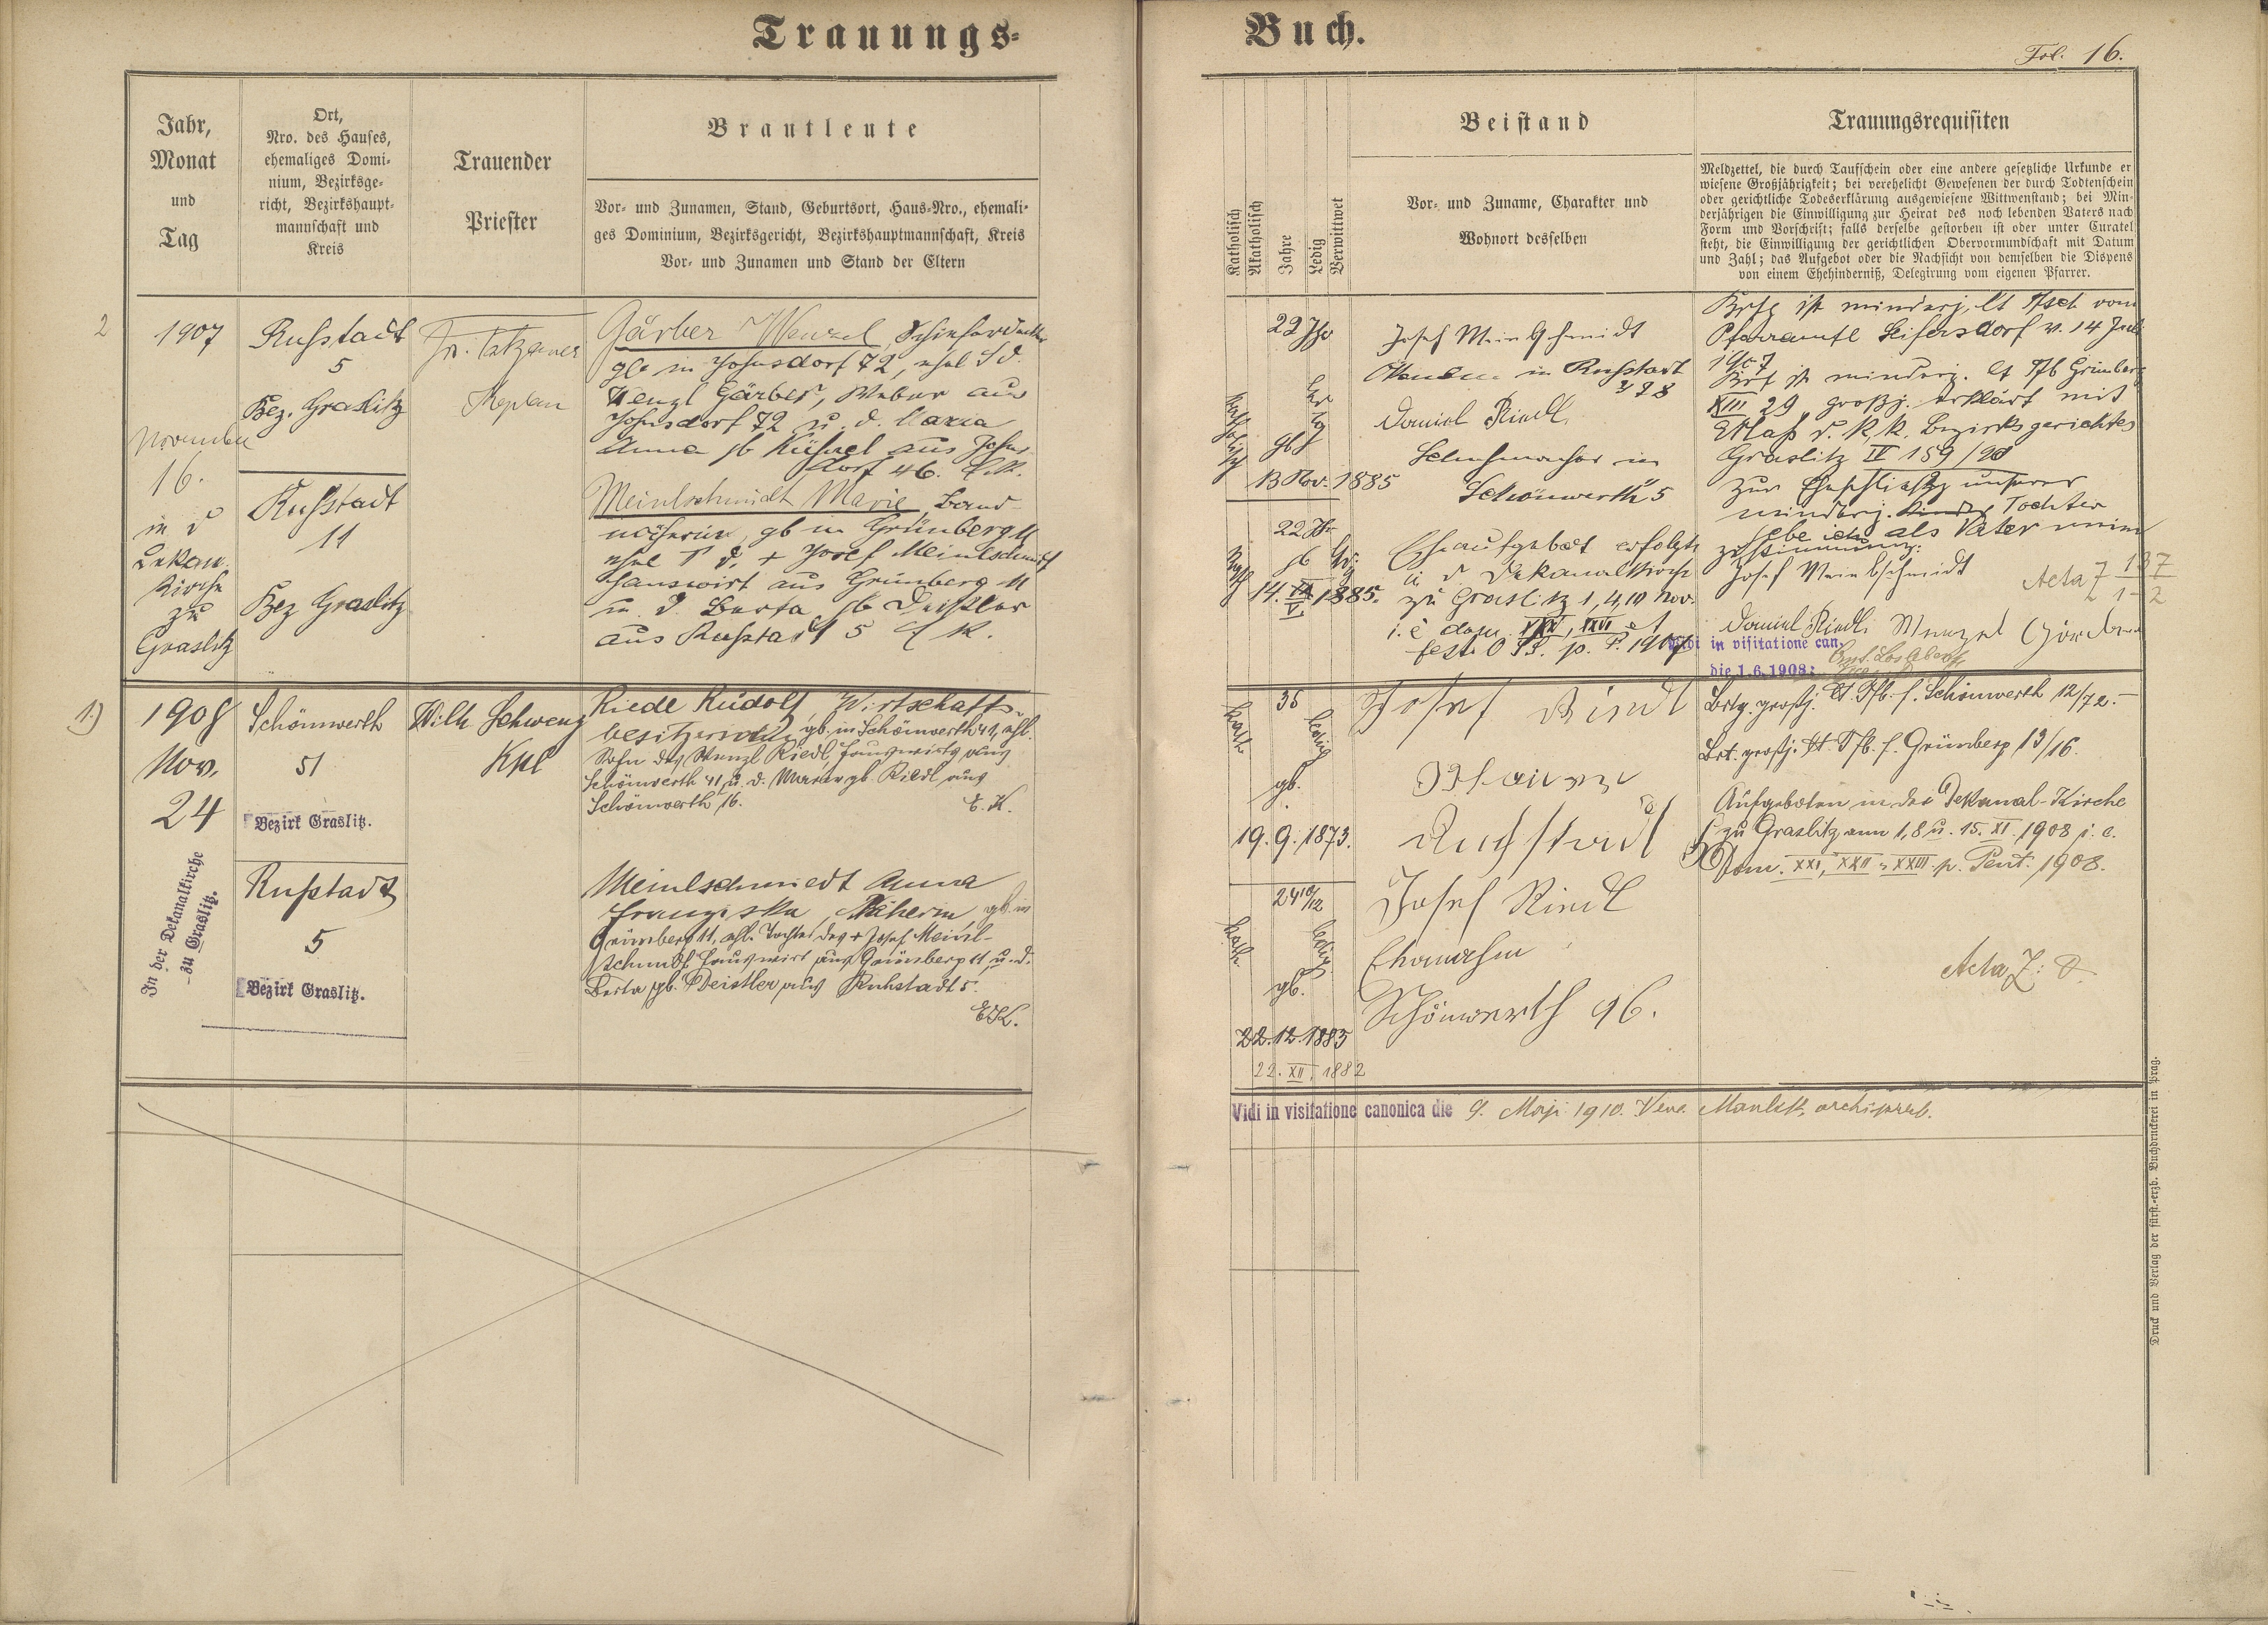 Trauungs-
Buch.
Fol. 16.
Jahr,
Monat
und
Tag
Ort,
Nro. des Hauses,
ehemaliges Domi-
nium, Bezirksge-
richt, Bezirkshaupt-
mannschaft und
Kreis
Trauender
Priester
Brautleute
Vor- und Zunamen, Stand, Geburtsort, Haus-Nro., ehemali-
ges Dominium, Bezirksgericht, Bezirkshauptmannschaft, Kreis
Vor- und Zunamen und Stand der Eltern
Katholisch
Akatholisch
Jahre
Ledig
Verwittwet
Beistand
Vor- und Zuname, Charakter und
Wohnort desselben
Trauungsrequisiten
Meldzettel, die durch Taufschein oder eine andere gesetzliche Urkunde er
wiesene Großjährigkeit; bei verehelicht Gewesenen der durch Todtenschein
oder gerichtliche Todeserklärung ausgewiesene Wittwenstand; bei Min-
derjährigen die Einwilligung zur Heirat des noch lebenden Vaters nach
Form und Vorschrift; falls derselbe gestorben ist oder unter Curatel
steht, die Einwilligung der gerichtlichen Obervormundschaft mit Datum
und Zahl; das Aufgebot oder die Nachsicht von demselben die Dispens
von einem Ehehinderniß, Delegirung vom eigenen Pfarrer.
2
1907
November
16.
in d
Dekan.
Kirche
zu
Graslitz
Ruhstadt
5
Bez. Graslitz
Ruhstadt
11
Bez Graslitz
Kaplan
Gärber Wenzel, Schieferdecker
gb. in Johnsdorf 72, ehel S d.
Wenzl Gärber, Weber aus
Johnsdorf 72 u. d. Maria
Anna gb Kühnel aus Johns-
dorf 46.
Meinlschmidt Marie, Band-
näherin, gb in Grünberg 11
ehel T d. + Josef Meinlschmidt
Hauswirt aus Grünberg 11
u. d. Berta gb Deistler
aus Ruhstadt 5
22 Jhr
gb
13 Nov. 1885
22 Jhr
gb
14. 1885.
Josef Meinlschmidt
in Ruhstadt
Daniel Riedl,
Schuhmacher in
Schönwerth 5
Eheaufgebot erfolgte
i d Dekanalkirche
zu Graslitz 1, 4, 10 Nov.
p. P. 1907
ist minderj, lt Tsch vom
Pfarramte Seifersdorf v. 14 Juli
1907
Brt ist minderj. lt Tfb Grünberg
XIII 29, großj. erklärt mit
Erlaß d. k.k. Bezirksgerichtes
Graslitz IV 159/98
Zur Eheschließg unserer
minderj. Kindes Tochter
gebe ich als Vater meine
zustimmung:
Josef Meinlschmidt
Acta 7 137
1-2
Daniel Riedl Wenzel Gärber
Vidi in visitatione can.
die 1.6.1908:
1.)
1908
Nov.
24
In der Dekanalkirche
zu Graslitz.
Schönwerth
51
Bezirk Graslitz.
Ruhstadt
5
Bezirk Graslitz.
Wilh. Schwenz
Kpl
Riedl Rudolf, Wirtschafts-
besitzerssohn, gb. in Schönwerth 41, ehl.
Sohn des Wenzl Riedl, Hauswirts aus
Schönwerth 41 u. d. Maria gb. Riedl aus
Schönwerth 16.
E. K.
Meinlschmiedt Anna
Franziska, Näherin, gb. in
Grünberg 11, ehl. Tochter des + Josef Meinl-
schmidt Hauswirt aus Grünberg 11, u. d.
Berta gb. Deistler aus Ruhstadt 5.
35
gb.
19. 9. 1873.
24 10/12
gb.
22. 12. 1883
22. XII. 1882
Josef Riedl
Ruhstadt
Josef Riedl
Schönwerth 96.
Brtg. großj. lt Tfb. f. Schönwerth 12/72.-
Brt. großj. lt. Tfb. f. Grünberg 13/16.
Aufgeboten in der Dekanal-Kirche
zu Graslitz am 1, 8 u. 15. XI. 1908 i. e.
Dom. XXI, XXII, XXIII p. Pent. 1908.
Acta
Vidi in visitatione canonica die 9. Maji 1910.
Druck und Verlag der fürst.-erzb. Buchdruckerei in Prag.